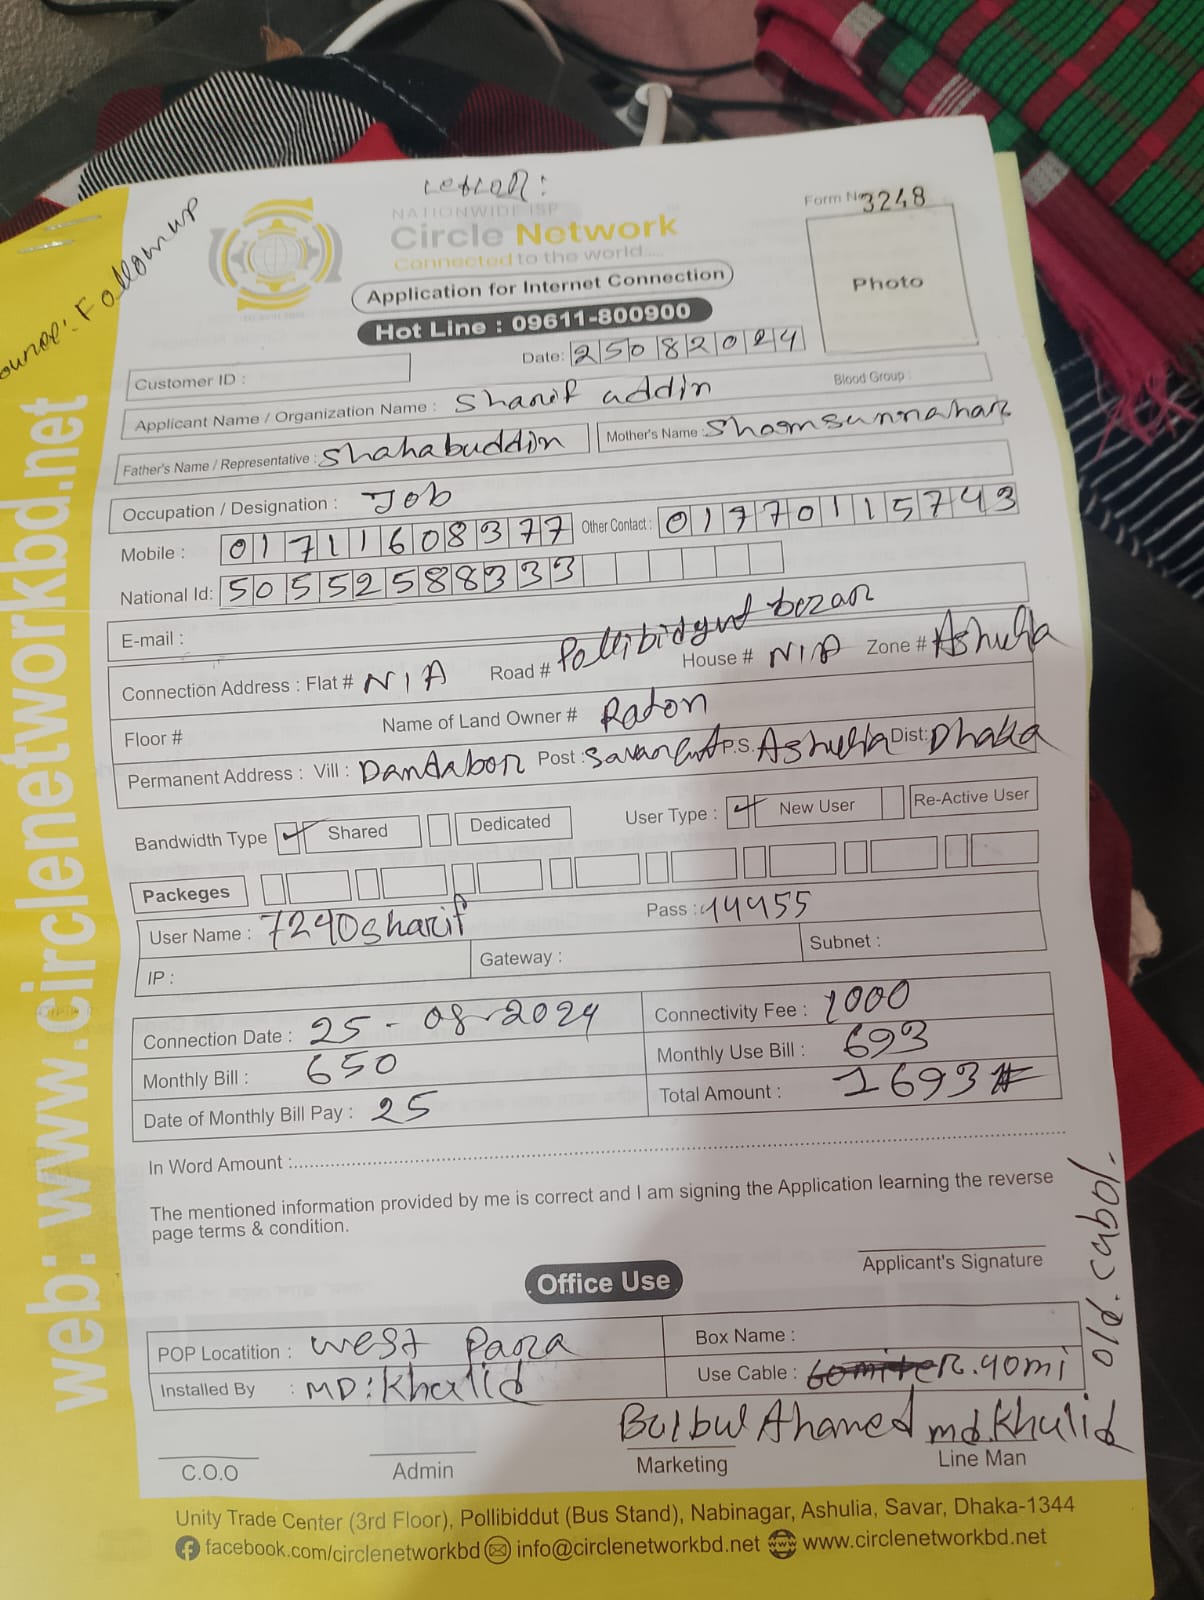 Source: Followup
NATIONWIDE ISP
Circle Network
Connected to the world....
Form No 3248
Photo
Application for Internet Connection
Hot Line : 09611-800900
Date: 25082024
Customer ID :
Blood Group :
Applicant Name / Organization Name : Sharif uddin
Father's Name / Representative : Shahabuddin Mother's Name : Shamsunnahar
Occupation / Designation : Job
Mobile : 01711608377 Other Contact : 01770115743
National Id: 50552588333
E-mail :
Connection Address : Flat # N/A Road # Pollibidyut bazar House # N/A Zone # Ashulia
Floor # Name of Land Owner # Raton
Permanent Address : Vill : Dandabor Post : Savar Cant P.S. Ashulia Dist: Dhaka
Bandwidth Type Shared Dedicated User Type : New User Re-Active User
Packeges
User Name : 7240sharif Pass : 44455
IP : Gateway : Subnet :
Connection Date : 25-08-2024 Connectivity Fee : 1000
Monthly Bill : 650 Monthly Use Bill : 693
Date of Monthly Bill Pay : 25 Total Amount : 1693#
In Word Amount :
The mentioned information provided by me is correct and I am signing the Application learning the reverse
page terms & condition.
Applicant's Signature
Office Use
POP Locatition : west Para Box Name :
Installed By : MD: Khalid Use Cable : 40mi
old. cabol.
Bulbul Ahamed md. Khalid
C.O.O Admin Marketing Line Man
Unity Trade Center (3rd Floor), Pollibiddut (Bus Stand), Nabinagar, Ashulia, Savar, Dhaka-1344
facebook.com/circlenetworkbd info@circlenetworkbd.net www.circlenetworkbd.net
web: www.circlenetworkbd.net